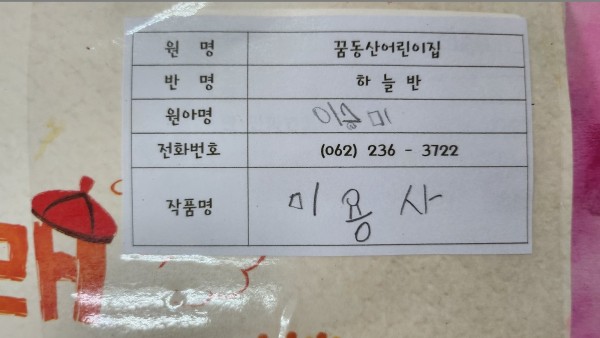 원 명 꿈동산어린이집
반 명 하늘반
원아명 이송미
전화번호 (062) 236 - 3722
작품명 미용사
래